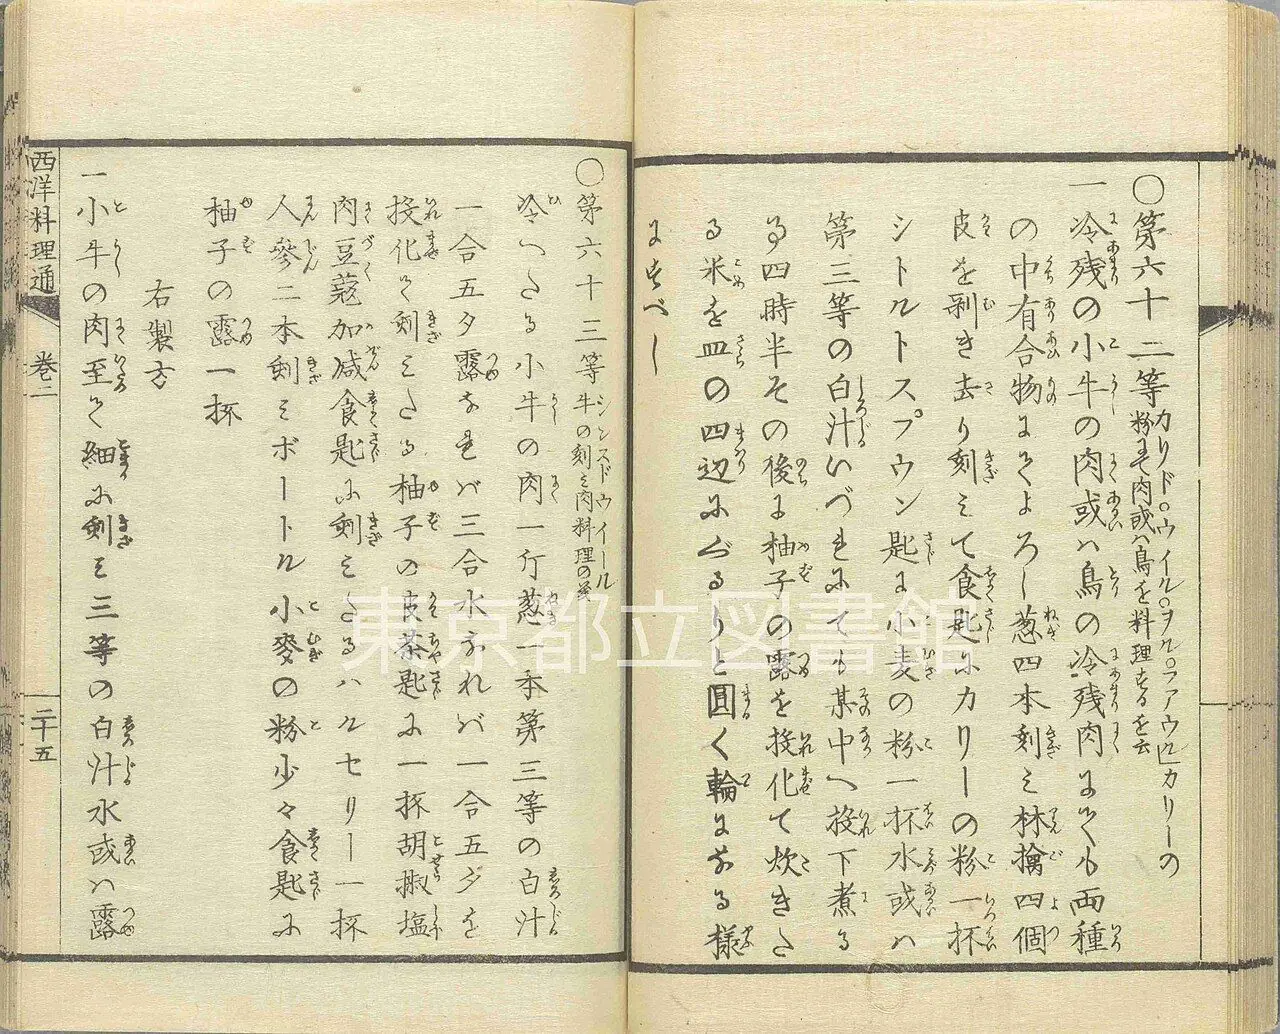 〇第六十二等 カリド。ウイル。ヲル。フアウ匕カリーの粉にて肉或ハ鳥を料理するを云
一冷残の小牛の肉或ハ鳥の冷残肉にても両種
の中有合物にてよろし葱四本刻ミ林檎四個
皮を剥き去り刻ミて食匙にカリーの粉一杯
シトルトスプウン匙に小麦の粉一杯水或ハ
第三等の白汁いづれにても其中へ投下煮る
事四時半その後に柚子の露を投化て炊きた
る米を皿の四辺にぐるりと圓く輪になる様
にすべし
〇第六十三等 シンスドウイール 牛の刻ミ肉料理の義
冷へたる小牛の肉一斤葱一本第三等の白汁
一合五夕露なれバ三合水なれバ一合五夕を
投化て刻ミたる柚子の皮茶匙に一杯胡椒塩
肉豆蔲加減食匙に刻ミたるハルセリー一杯
人参二本刻ミボートル小麥の粉少々食匙に
柚子の露一杯
右製方
一小牛の肉至て細に刻ミ三等の白汁水或ハ露
西洋料理通
巻二
二十五
東京都立図書館